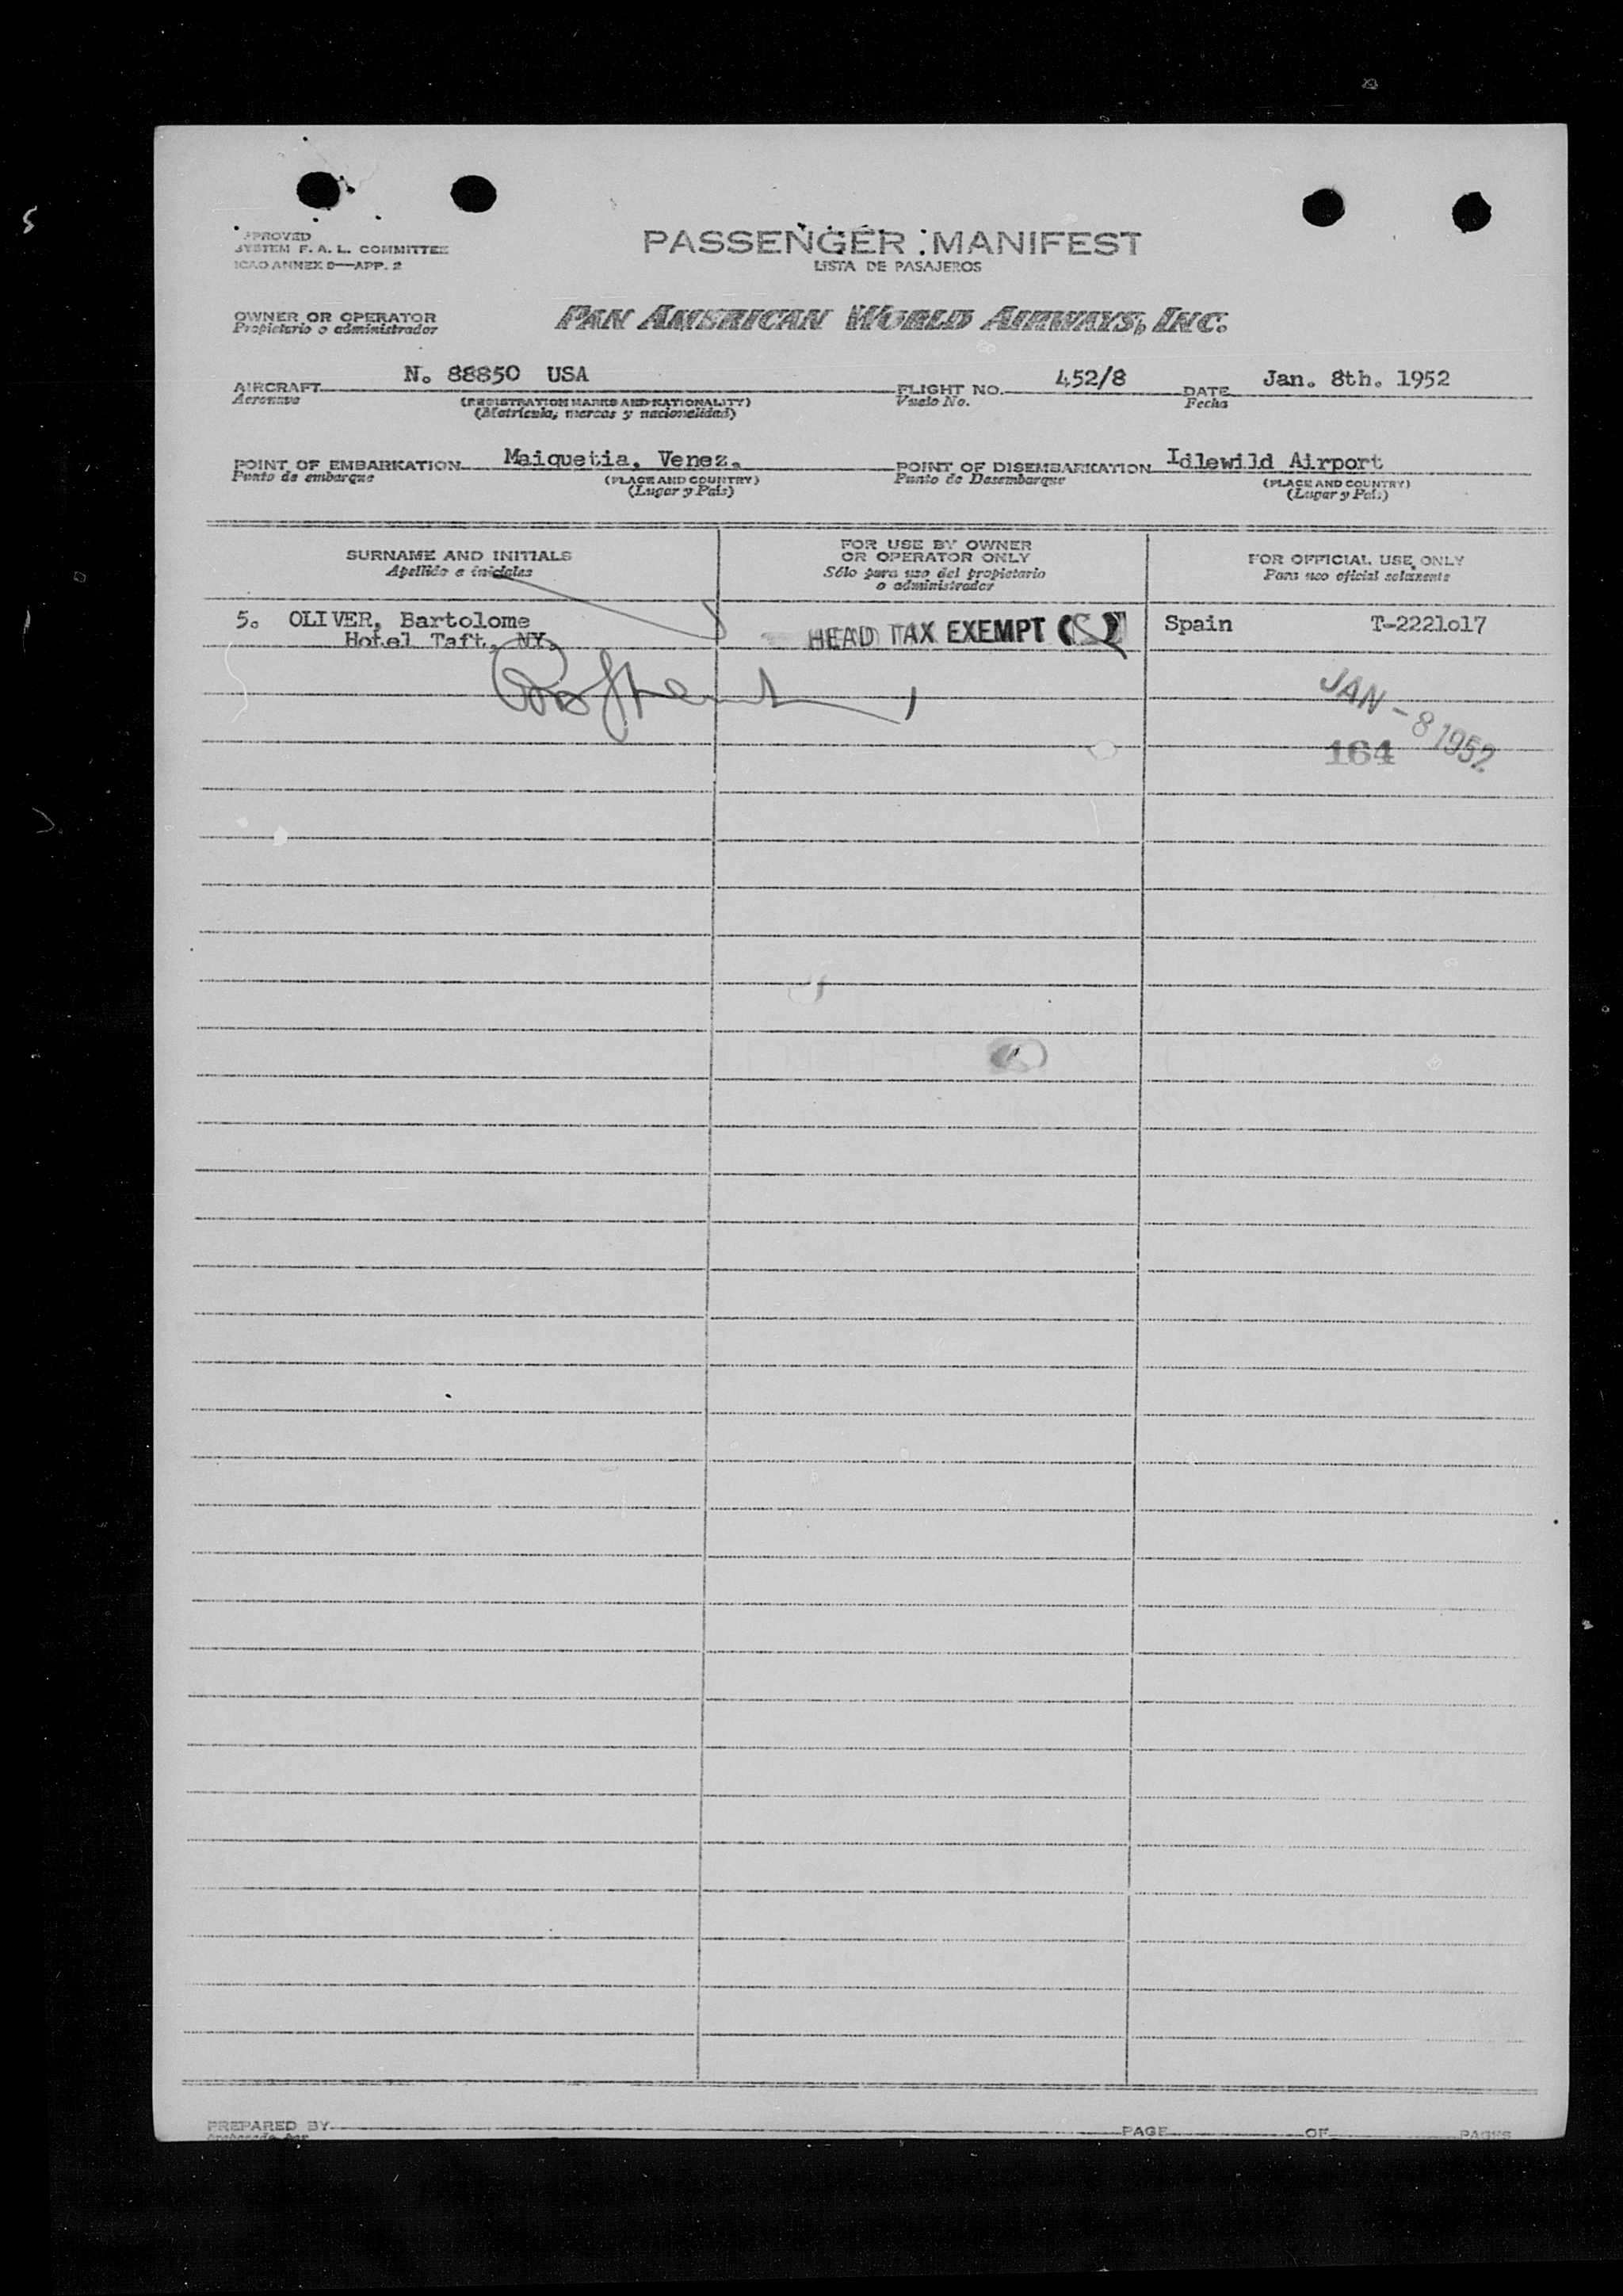 5
APPROVED
SYSTEM F. A. L. COMMITTEE
ICAO ANNEX 9—APP. 2
PASSENGER MANIFEST
LISTA DE PASAJEROS
OWNER OR OPERATOR
Propietario o administrador
PAN AMERICAN WORLD AIRWAYS, INC.
AIRCRAFT N. 88850 USA FLIGHT NO. 452/8 DATE Jan. 8th. 1952
Aeronave (REGISTRATION MARKS AND NATIONALITY) Vuelo No. Fecha
(Matrícula, marcas y nacionalidad)
POINT OF EMBARKATION Maiquetia, Venez. POINT OF DISEMBARKATION Idlewild Airport
Punto de embarque (PLACE AND COUNTRY) Punto de Desembarque (PLACE AND COUNTRY)
(Lugar y País) (Lugar y País)
SURNAME AND INITIALS
Apellido e iniciales
FOR USE BY OWNER
OR OPERATOR ONLY
Sólo para uso del propietario
o administrador
FOR OFFICIAL USE ONLY
Para uso oficial solamente
5. OLIVER, Bartolome HEAD TAX EXEMPT Spain T-2221o17
Hotel Taft, NY.
JAN - 8 1952
164
PREPARED BY PAGE OF PAGES
Preparado por